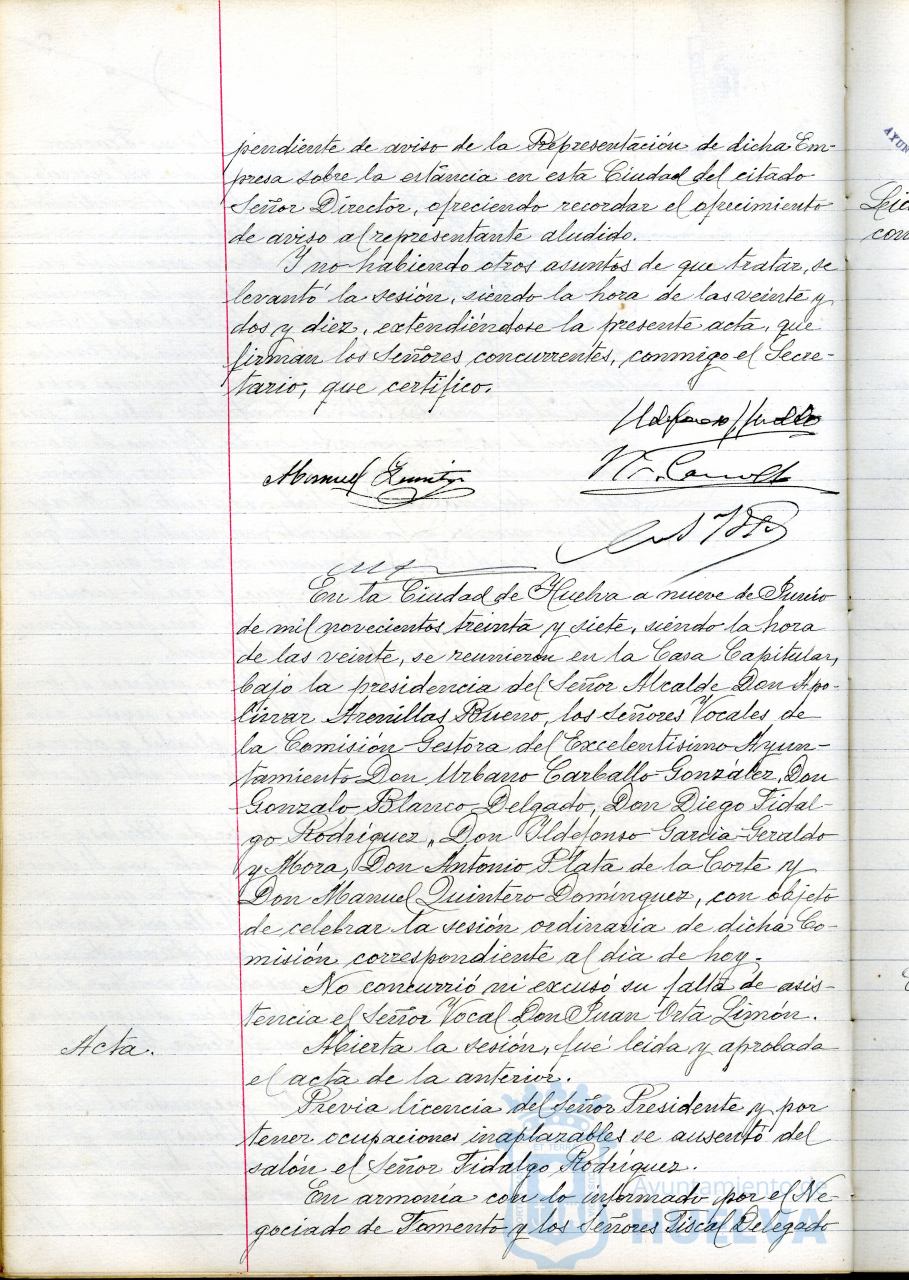 pendiente de aviso de la Representación de dicha Em-
presa sobre la estáncia en esta Ciudad del citado
Señor Director, ofreciendo recordar el ofrecimiento
de aviso al representante aludido.
Y no habiendo otros asuntos de que tratar, se
levantó la sesión, siendo la hora de las veinte y
dos y diez, extendiéndose la presente acta, que
firman los Señores concurrentes, conmigo el Secre-
tario, que certifico.
Manuel
En la Ciudad de Huelva a nueve de Junio
de mil novecientos treinta y siete, siendo la hora
de las veinte, se reunieron en la Casa Capitular,
bajo la presidencia del Señor Alcalde Don Apo-
linar Arenillas Bueno, los Señores Vocales de
la Comisión Gestora del Excelentísimo Ayun-
tamiento Don Urbano Carballo González, Don
Gonzalo Blanco Delgado, Don Diego Fidal-
go Rodríguez, Don Ildefonso García-Geraldo
y Mora, Don Antonio Plata de la Corte y
Don Manuel Quintero Domínguez, con objeto
de celebrar la sesión ordinaria de dicha Co-
misión correspondiente al día de hoy.
No concurrió ni excusó su falta de asis-
tencia el Señor Vocal Don Juan Orta Limón.
Acta.
Abierta la sesión, fué leída y aprobada
el acta de la anterior.
Previa licencia del Señor Presidente y por
tener ocupaciones inaplazables se ausentó del
salón el Señor Fidalgo Rodríguez.
En armonía con lo informado por el Ne-
gociado de Fomento y los Señores Fiscal Delegado
Ayuntamiento de
HUELVA